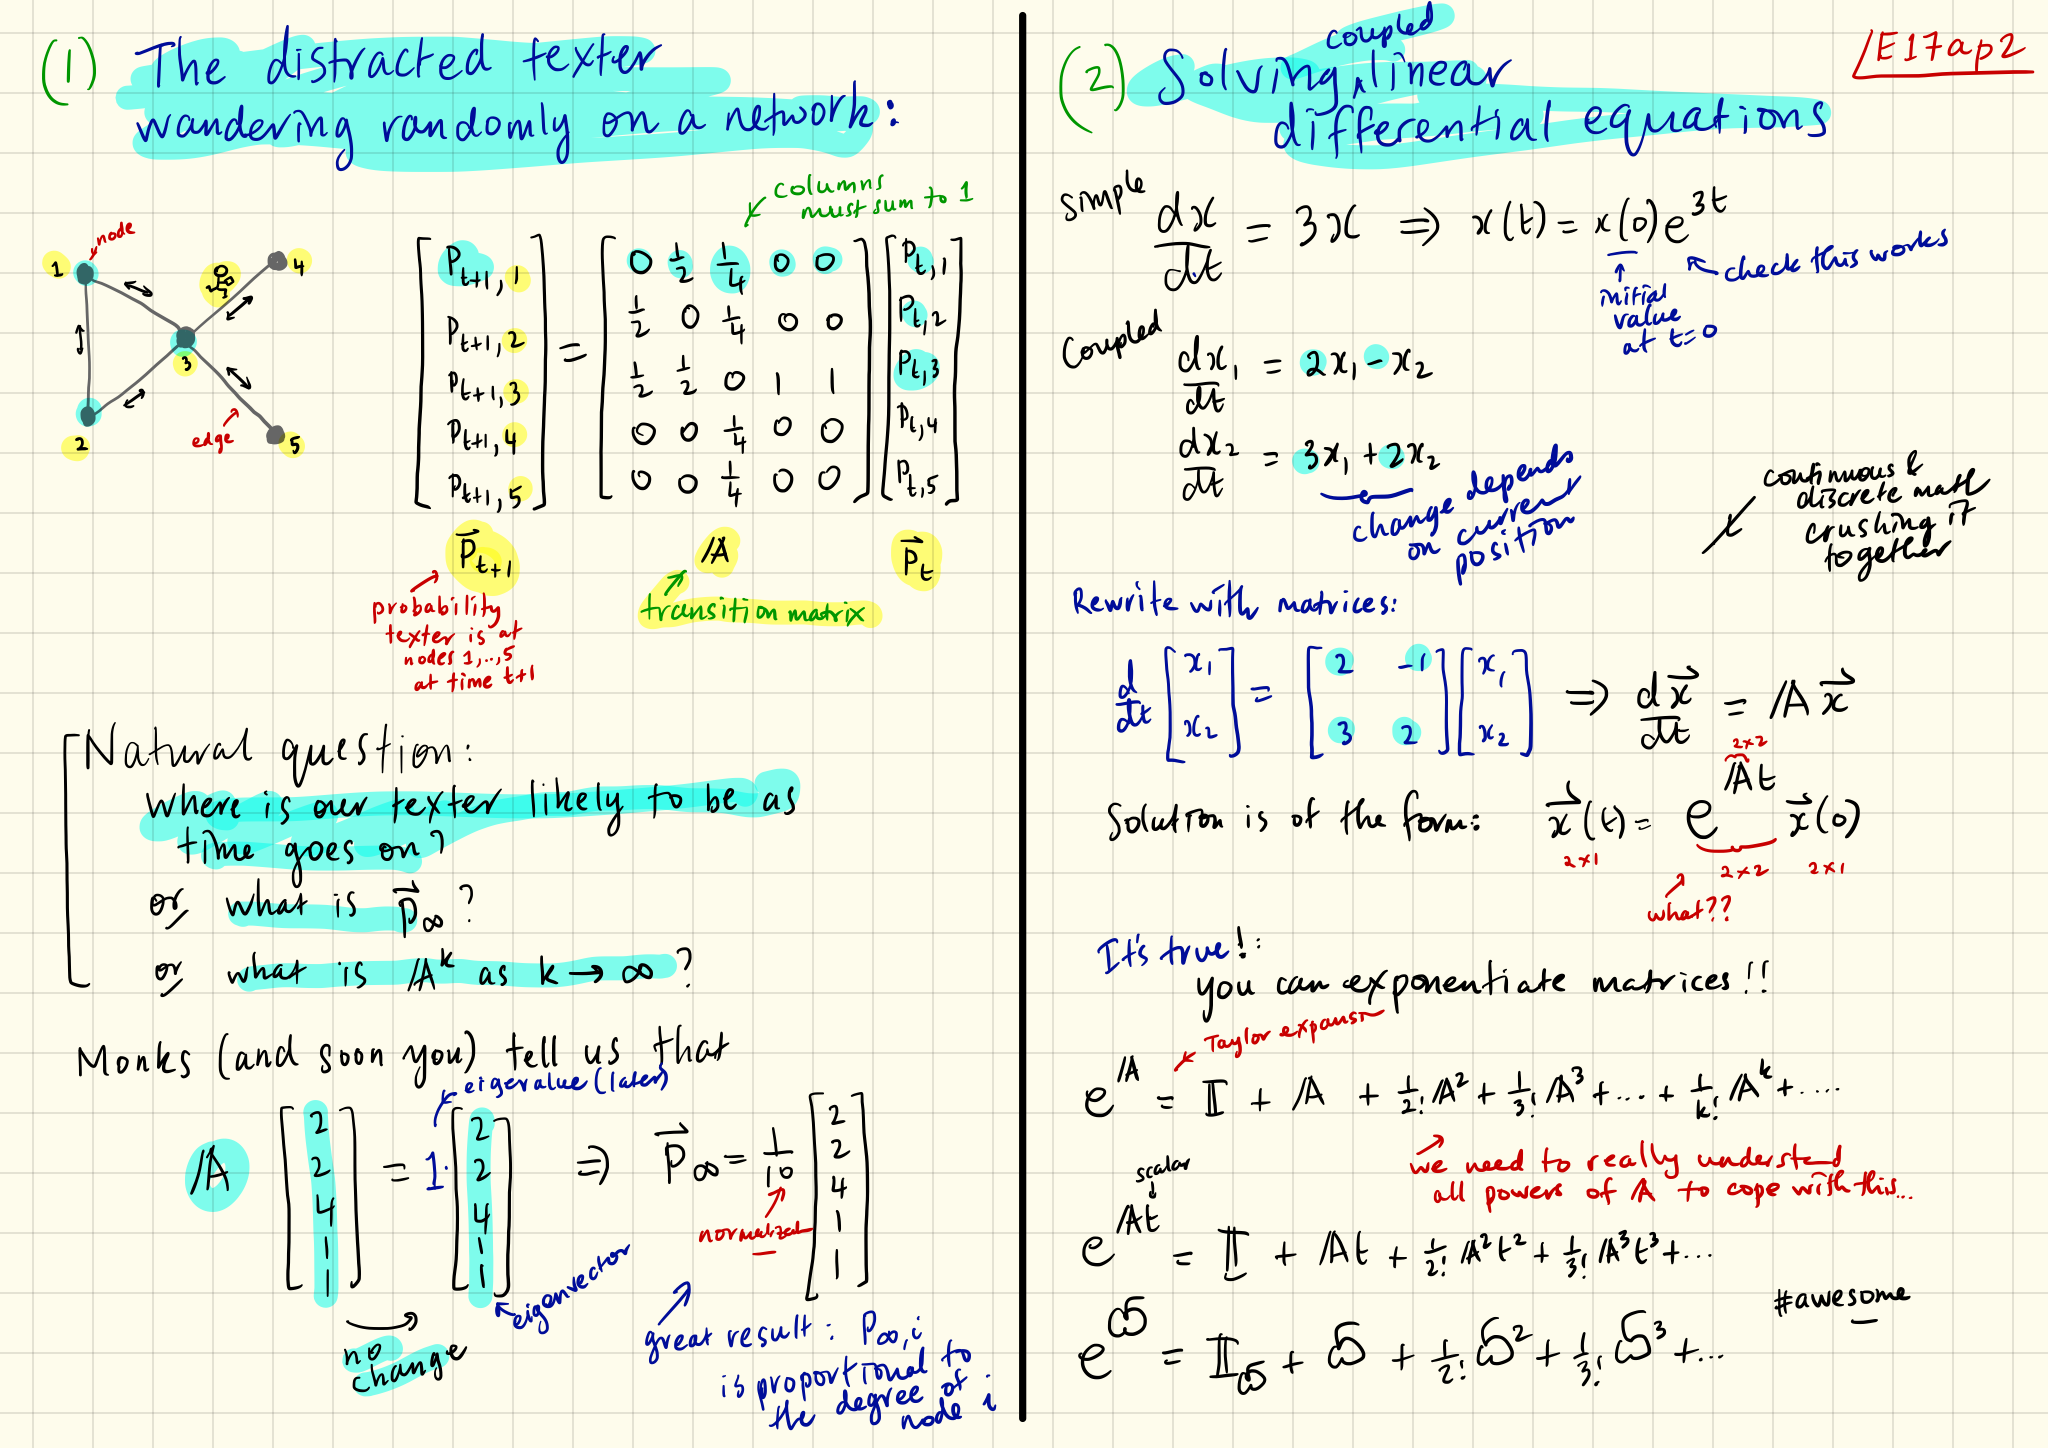 (1) The distracted texter
wandering randomly on a network:
columns
must sum to 1
node
1
4
3
2
5
edge
[P_{t+1,1}] = [0 1/2 1/4 0 0] [P_{t,1}]
[P_{t+1,2}] [1/2 0 1/4 0 0] [P_{t,2}]
[P_{t+1,3}] [1/2 1/2 0 1 1] [P_{t,3}]
[P_{t+1,4}] [0 0 1/4 0 0] [P_{t,4}]
[P_{t+1,5}] [0 0 1/4 0 0] [P_{t,5}]
P⃗_{t+1} 𝔸 P⃗_t
probability
texter is at
nodes 1,..,5
at time t+1
transition matrix
Natural question:
where is our texter likely to be as
time goes on?
or what is P⃗_∞?
or what is 𝔸^k as k → ∞?
Monks (and soon you) tell us that
eigenvalue (later)
𝔸 [2 2 4 1 1] = 1· [2 2 4 1 1] ⇒ P⃗_∞ = 1/10 [2 2 4 1 1]
normalized
no
change
eigenvector
great result: P_{∞,i}
is proportional to
the degree of
node i
/E17ap2
(2) Solving coupled linear
differential equations
simple dx/dt = 3x ⇒ x(t) = x(0)e^{3t}
initial
value
at t=0
check this works
Coupled
dx_1/dt = 2x_1 - x_2
dx_2/dt = 3x_1 + 2x_2
change depends
on current
position
continuous &
discrete math
crushing it
together
Rewrite with matrices:
d/dt [x_1] = [2 -1] [x_1] ⇒ dx⃗/dt = 𝔸x⃗
[x_2] [3 2] [x_2]
Solution is of the form: x⃗(t) = e^{𝔸t} x⃗(0)
2×2
2×1 2×2 2×1
what??
It's true!:
you can exponentiate matrices!!
Taylor expansion
e^𝔸 = 𝕀 + 𝔸 + 1/2! 𝔸² + 1/3! 𝔸³ + ... + 1/k! 𝔸^k + ....
we need to really understand
all powers of 𝔸 to cope with this...
scalar
e^{𝔸t} = 𝕀 + 𝔸t + 1/2! 𝔸²t² + 1/3! 𝔸³t³ + ...
#awesome